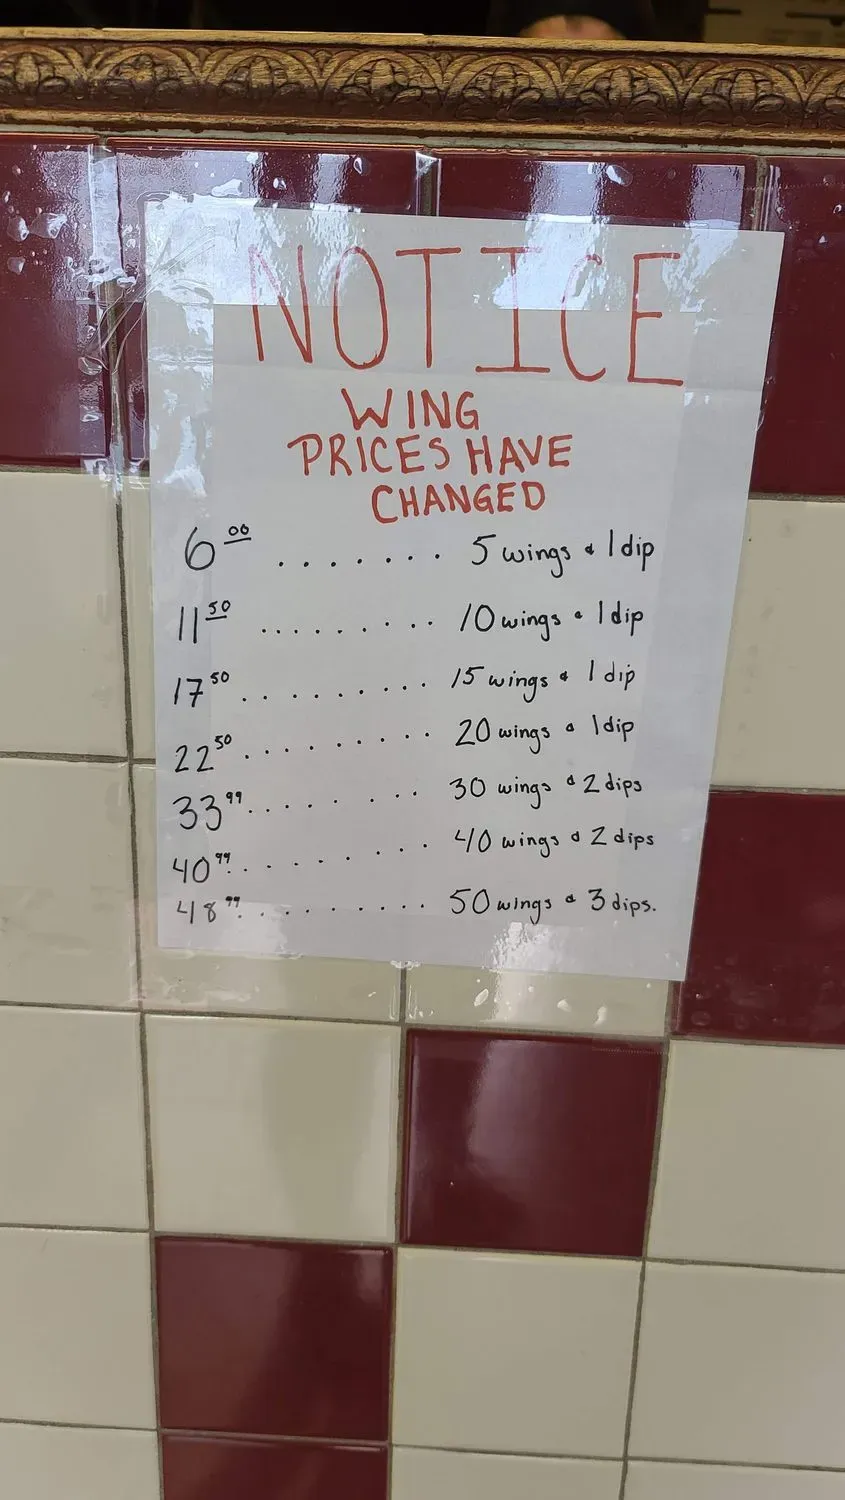 NOTICE
WING
PRICES HAVE
CHANGED
6 00 ....... 5 wings & 1 dip
11 50 ......... 10 wings & 1 dip
17 50 ......... 15 wings & 1 dip
22 50 ......... 20 wings & 1 dip
33 99 ........ 30 wings & 2 dips
40 99 ........ 40 wings & 2 dips
48 99 ......... 50 wings & 3 dips.